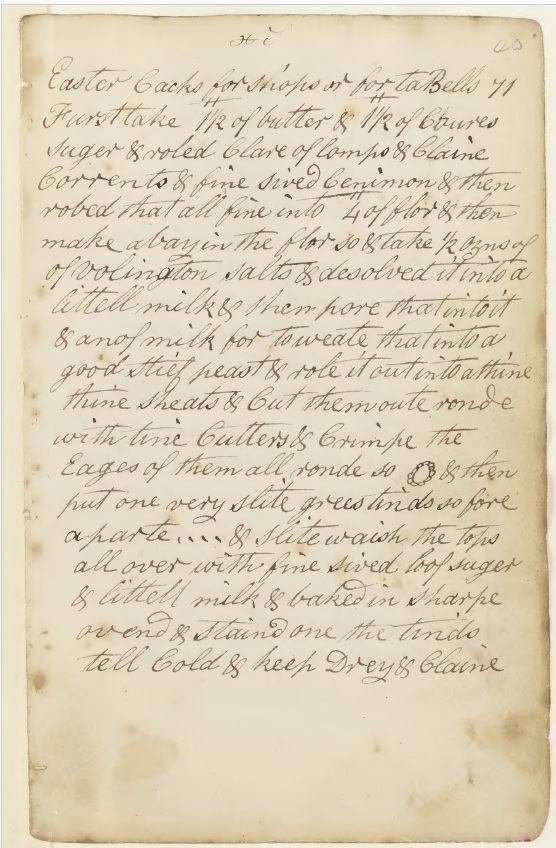 40
Easter Cacks for shops or for taBells 71
Furst take 1 1/2 of butter & 1 1/2 of Coures
suger & roled Clare of lomps & Claine
Corrents & fine sived Cenimon & then
robed that all fine into 4 of flor & then
make a bay in the flor so & take 1/2 ozns of
of volington salts & desolved it into a
littell milk & then pore that into it
& anof milk for to weate that into a
good stief peast & role it out into a thine
thine sheats & Cut them oute ronde
with tine Cutters & Crimpe the
Eages of them all ronde so & then
put one very slite grees tinds so fore
aparte .... & slite waish the tops
all over with fine sived loof suger
& littell milk & baked in sharpe
ovend & staind one the tinds
tell Cold & keep Drey & Claine